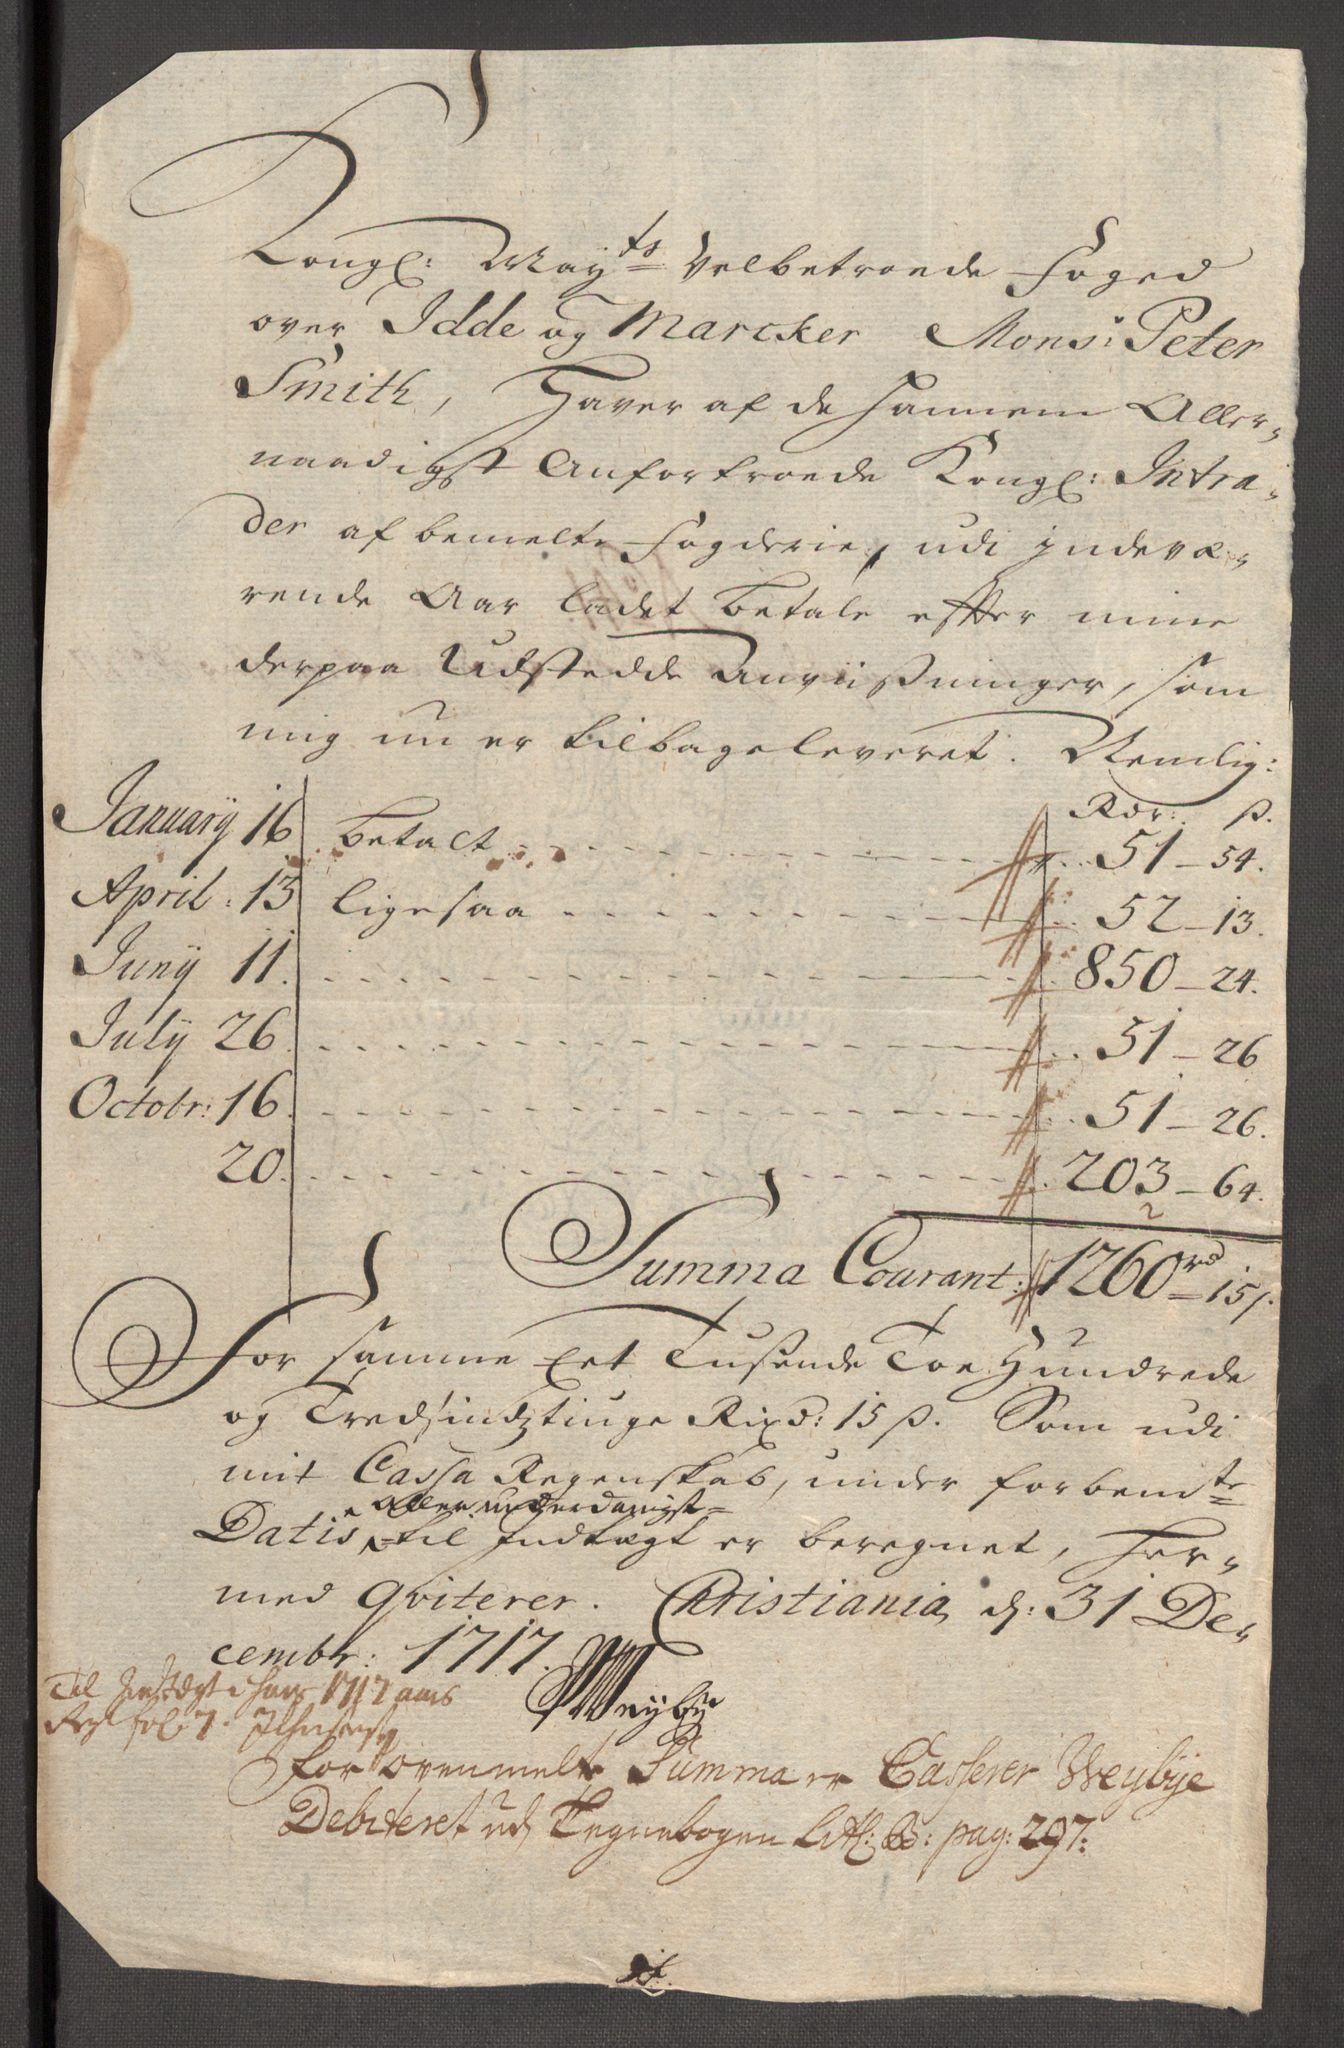 Kongl: May^ts Velbetroede Foged
over Idde og Marcker Mons^r: Peter
Smith, Haver af de hannem Aller-
naadigst Anfortroede Kongl: Intra-
der af bemelte Fogderie, udi indevæ-
rende Aar ladet betale effter mine
derpaa Udstedde Anviißninger, som
mig nu er tilbageleveret. Nemlig:
Rdr: ß.
Januarÿ 16 betalt 51 - 54.
April: 13 ligesaa 52 - 13.
Junÿ 11. 850 - 24.
Julÿ 26. 51 - 26
Octobr: 16. 51 - 26.
20. 203 - 64.
2
Summa Courant: 1260 rd 15ß.
For samme Eet Tusende Toe Hundrede
og Tredsindztiuge Rixd: 15 ß. Som udi
mit Cassa Regenskab, under forbem^te
Datis allerunderdanigst til Indtægt er beregnet, her-
med qviterer. Christiania d: 31 De-
cembr: 1717.
Til Indtegt i hans 1717 aars
fol 7.
Weybye
For ovenmelte Summa er Casserer Weybÿe
Debiteret udj Tegnebogen Litl: B: pag: 297: